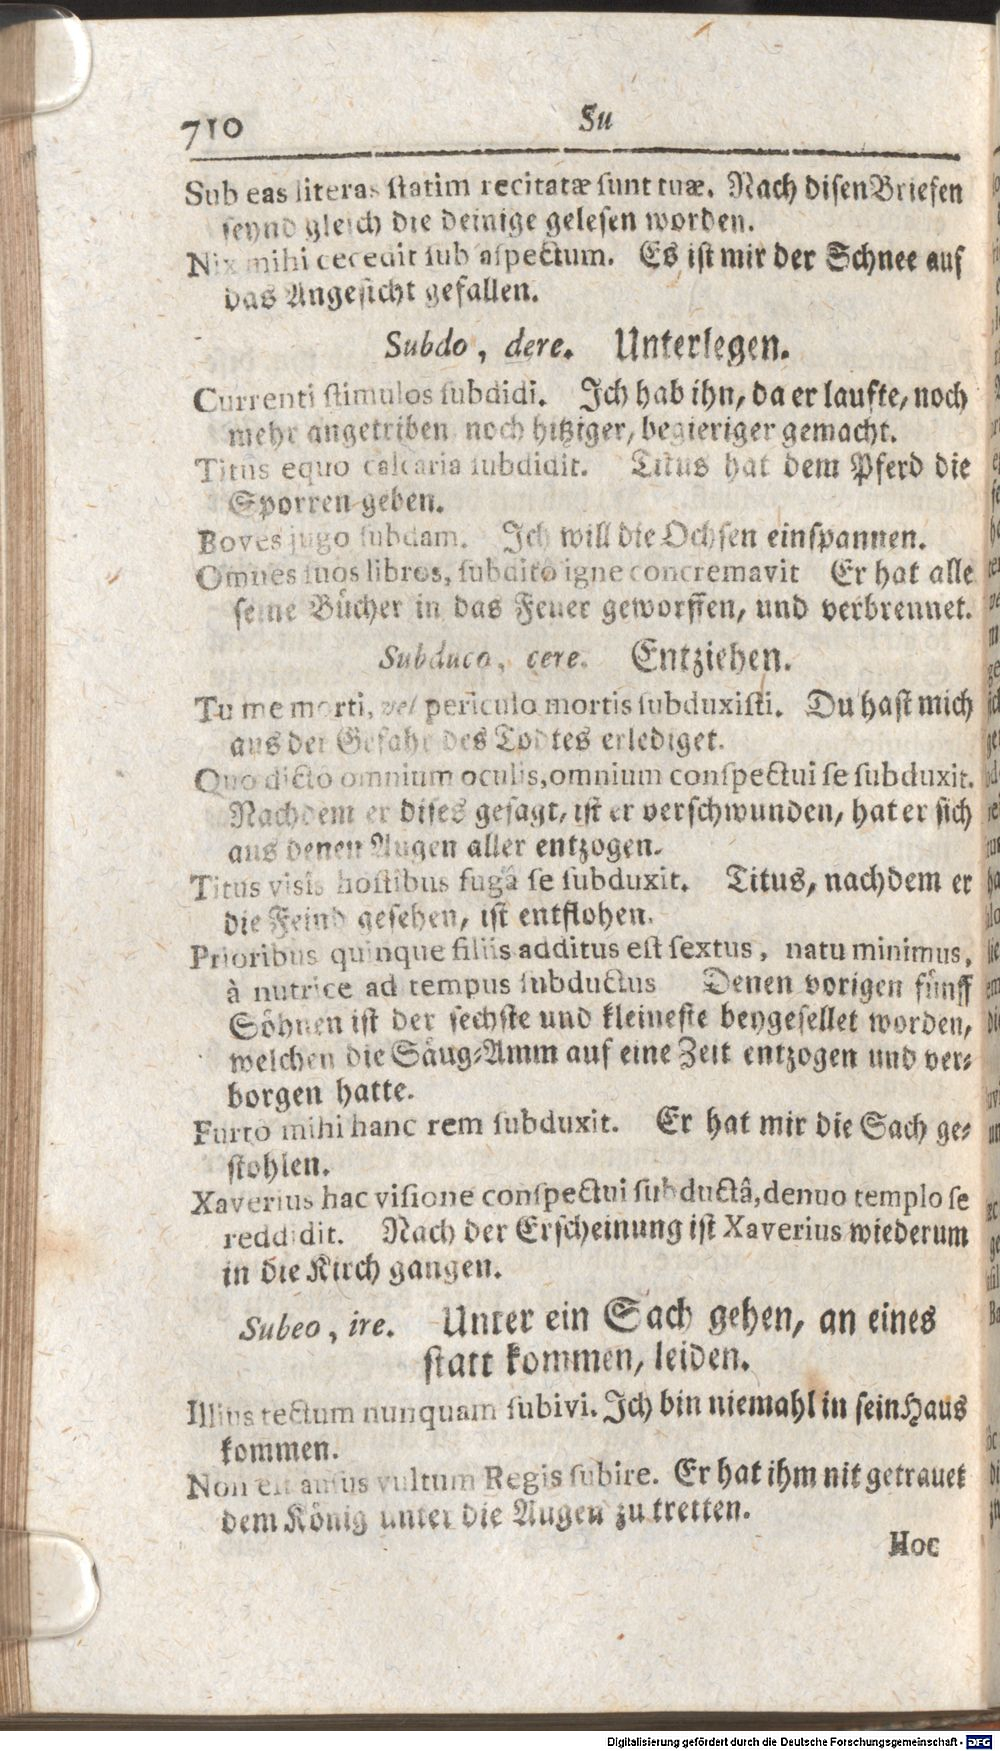 710 Su
Sub eas literas statim recitatæ sunt tuæ. Nach disen Briefen
seynd gleich die deinige gelesen worden.
Nix mihi cecedit sub aspectum. Es ist mir der Schnee auf
das Angesicht gefallen.
Subdo, dere. Unterlegen.
Currenti stimulos subdidi. Ich hab ihn, da er laufte, noch
mehr angetriben noch hitziger, begieriger gemacht.
Titus equo calcaria subdidit. Titus hat dem Pferd die
Sporren geben.
Boves jugo subdam. Ich will die Ochsen einspannen.
Omnes suos libros, subditô igne concremavit Er hat alle
seine Bücher in das Feuer geworffen, und verbrennet.
Subduco, cere. Entziehen.
Tu me morti, vel periculo mortis subduxisti. Du hast mich
aus der Gefahr des Todtes erlediget.
Quo dictô omnium oculis, omnium conspectui se subduxit.
Nachdem er dises gesagt, ist er verschwunden, hat er sich
aus denen Augen aller entzogen.
Titus visis hostibus fugâ se subduxit. Titus, nachdem er
die Feind gesehen, ist entflohen.
Prioribus quinque filiis additus est sextus, natu minimus,
à nutrice ad tempus subductus Denen vorigen fünff
Söhnen ist der sechste und kleineste beygesellet worden,
welchen die Säug-Amm auf eine Zeit entzogen und ver-
borgen hatte.
Furtô mihi hanc rem subduxit. Er hat mir die Sach ge-
stohlen.
Xaverius hac visione conspectui subductâ, denuo templo se
reddidit. Nach der Erscheinung ist Xaverius wiederum
in die Kirch gangen.
Subeo, ire. Unter ein Sach gehen, an eines
statt kommen, leiden.
Illius tectum nunquam subivi. Ich bin niemahl in sein Haus
kommen.
Non est ausus vultum Regis subire. Er hat ihm nit getrauet
dem König unter die Augen zu tretten.
Hoc
Digitalisierung gefördert durch die Deutsche Forschungsgemeinschaft - DFG